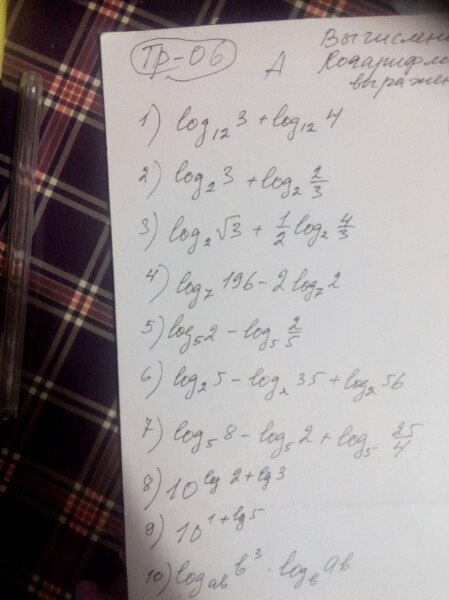 Тр-06
А
Вычислени
Логарифм
выражен
1) log₁₂ 3 + log₁₂ 4
2) log₂ 3 + log₂ 2/3
3) log₂ √3 + 1/2 log₂ 4/3
4) log₇ 196 - 2 log₇ 2
5) log₅ 2 - log₅ 2/5
6) log₂ 5 - log₂ 35 + log₂ 56
7) log₅ 8 - log₅ 2 + log₅ 25/4
8) 10^(lg 2 + lg 3)
9) 10^(1 + lg 5)
10) log_ab b³ · log_b ab